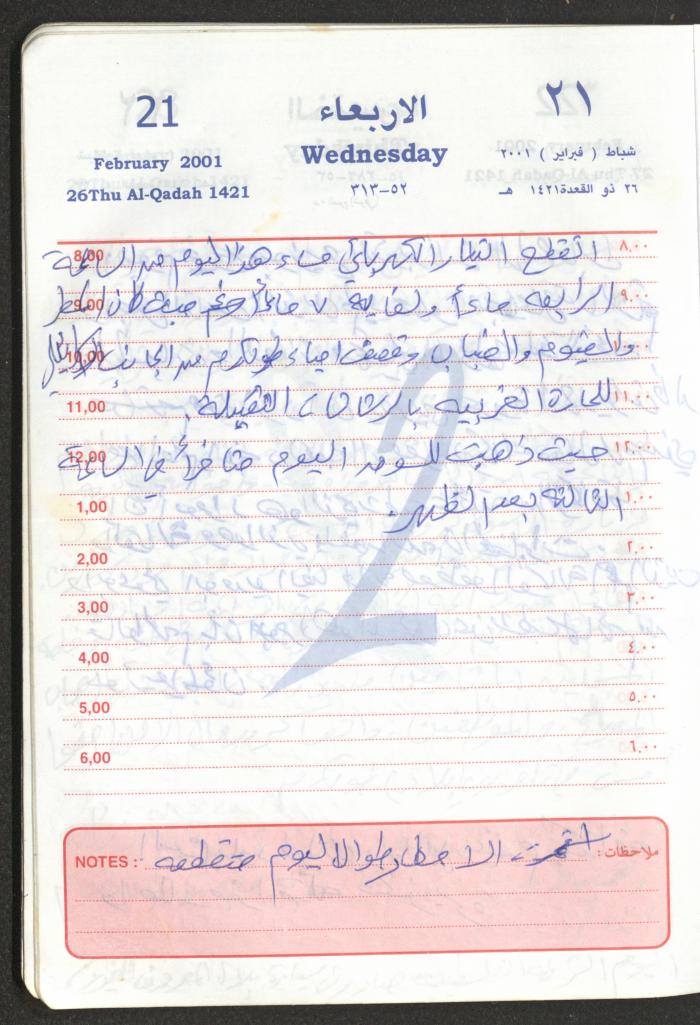 21
February 2001
26Thu Al-Qadah 1421
الاربعاء
Wednesday
٣١٣-٥٢
٢١
شباط ( فبراير ) ٢٠٠١
٢٦ ذو القعدة ١٤٢١ هـ
8,00 انقطع التيار الكهربائي مساء هذا اليوم من الساعة ٨،٠٠
9,00 الرابعة مساءً ولغاية ٧ مساءً حيث كان المطر ٩،٠٠
10,00 والغيوم والضباب وقصف احياء طولكرم من الجانب ١٠،٠٠
11,00 للحارة الغربية بالرشاشات الثقيلة. ١١،٠٠
12,00 حيث ذهبت للسوق اليوم متأخراً في الساعة ١٢،٠٠
1,00 الثالثة بعد الظهر. ١،٠٠
2,00 ٢،٠٠
3,00 ٣،٠٠
4,00 ٤،٠٠
5,00 ٥،٠٠
6,00 ٦،٠٠
ملاحظات: استمرت الامطار طوال اليوم متقطعه NOTES :